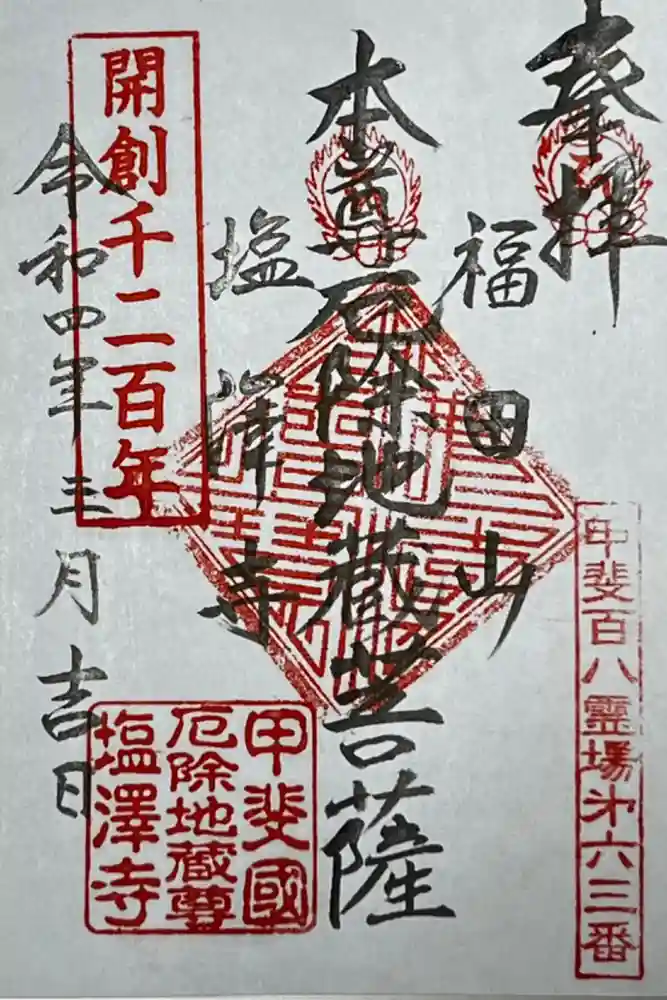 奉拝
福田山
本尊厄除地蔵菩薩
塩澤寺
令和四年三月吉日
開創千二百年
甲斐百八霊場第六三番
甲斐國
厄除地蔵尊
塩澤寺